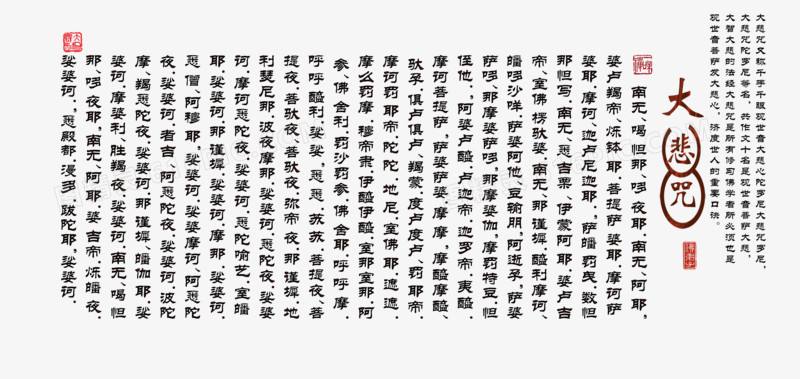 大悲咒又称千手千眼观世音大悲心陀罗尼大悲咒罗尼，
大悲咒陀罗尼等名，共作文十名是观世音菩萨大慈，
大智大悲的法经大悲咒是所有修习佛学者所必须也是
观世音菩萨发大慈心，济度世人的重要口诀。
大悲咒
南无、喝怛那、哆夜耶，南无、阿耶，
婆卢羯帝、烁钵耶、菩提萨婆耶、摩诃萨
婆耶、摩诃、迦卢尼迦耶，萨皤罚曳，数怛
那怛写，南无、悉吉栗、伊蒙阿耶、婆卢吉
帝、室佛楞驮婆、南无、那谨墀、醯利摩诃、
皤哆沙咩，萨婆阿他豆输朋，阿逝孕，萨婆
萨哆、那摩婆萨哆，那摩婆伽，摩罚特豆，怛
侄他，阿婆卢醯，卢迦帝，迦罗帝，夷醯，
摩诃菩提萨，萨婆萨婆，摩摩，摩摩醯，
驮孕，俱卢俱卢、羯蒙，度卢度卢、罚耶帝，
摩诃罚耶帝，陀陀，地尼，室佛耶，遮遮，
摩么罚摩，穆帝隶，伊醯伊醯，室那室那，阿
参、佛舍利，罚沙罚参，佛舍耶，呼呼摩，
呼呼醯利，娑娑，悉悉，苏苏，菩提夜、菩
提夜、菩驮夜、菩驮夜，弥帝夜，那谨墀，地
利瑟尼那，波夜摩那，娑婆诃，悉陀夜，娑婆
诃，摩诃悉陀夜，娑婆诃，悉陀喻艺，室皤
耶，娑婆诃，那谨墀，娑婆诃，摩那，娑婆诃，
悉僧，阿穆耶，娑婆诃，娑婆摩诃、阿悉陀
夜，娑婆诃，者吉、阿悉陀夜，娑婆诃，波陀
摩、羯悉陀夜，娑婆诃，那谨墀、皤伽耶，娑
婆诃，摩婆利、胜羯夜，娑婆诃，南无、喝怛
那、哆夜耶，南无、阿耶、婆吉帝、烁皤夜，
娑婆诃，悉殿都，漫多，跋陀耶，娑婆诃。